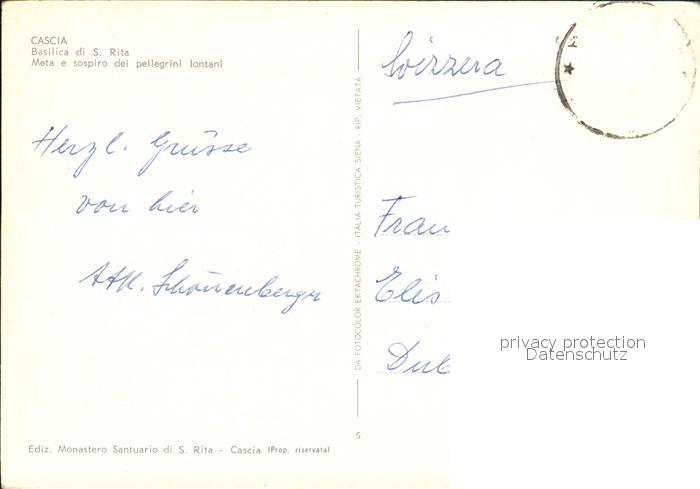 CASCIA
Basilica di S. Rita
Meta e sospiro dei pellegrini lontani
Svizzera
Herzl. Grüsse
von hier
Schönenberger
Frau
Elis
Dub
DA FOTOCOLOR EKTACHROME - ITALIA TURISTICA SIENA - RIP. VIETATA
5
privacy protection
Datenschutz
Ediz. Monastero Santuario di S. Rita - Cascia (Prop. riservata)